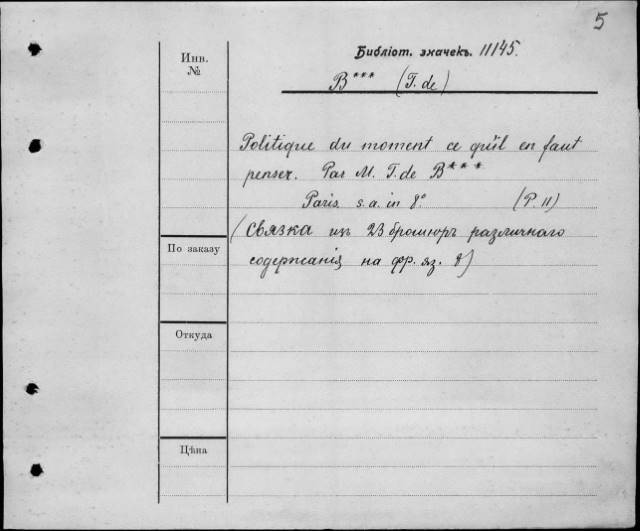 5
Библіот. значекъ. 11145.
Инв.
№
B*** (T. de)
Politique du moment ce qu'il en faut
penser. Par M. T. de B***
Paris. s. a. in 8°. (P. 11)
(Связка изъ 23 брошюръ различнаго
содержанія на фр. яз. 8)
По заказу
Откуда
Цѣна